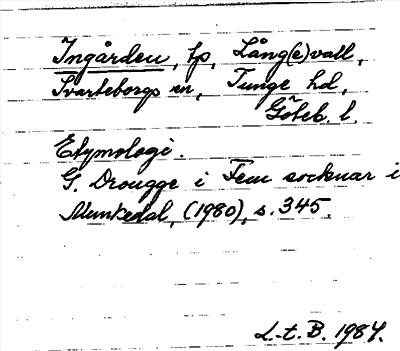 Ingården, tp, Lång(e)vall,
Svarteborgs sn, Tunge hd,
Göteb. l.
Etymologi.
G. Drougge i Fem socknar i
Munkedal, (1980), s. 345.
L-t. B. 1984.